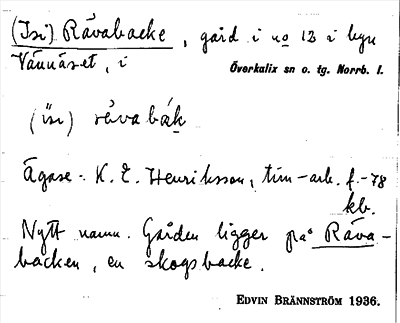 (Isi) Rävabacke, gård i no 13 i byn
Vännäset, i Överkalix sn o. tg. Norrb. l.
(isi) räva bák
Ägare: K. E. Henriksson, tim-arb. f.-78
kb.
Nytt namn. Gården ligger på Räva-
backen, en skogsbacke.
EDVIN BRÄNNSTRÖM 1936.